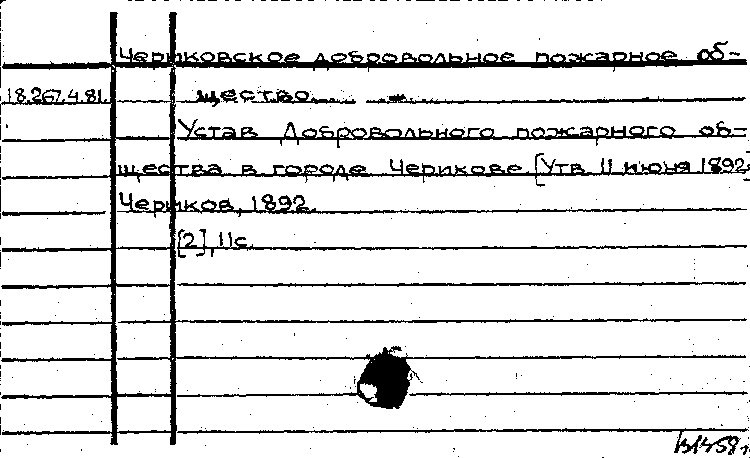 Чериковское добровольное пожарное об-
18.267.4.81. щество.
Устав Добровольного пожарного об-
щества в городе Черикове. [Утв. 11 июня 1892
Чериков, 1892.
[2], 11с.